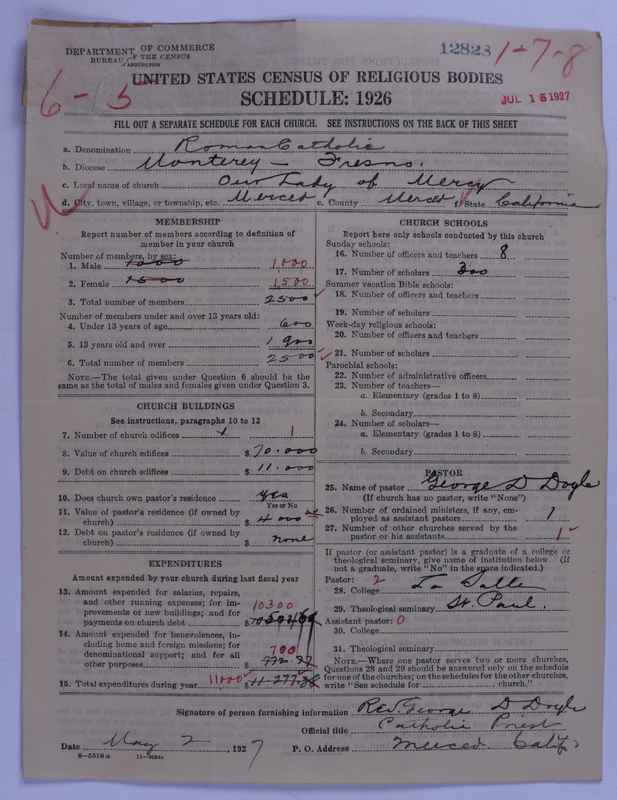 DEPARTMENT OF COMMERCE
BUREAU OF THE CENSUS
WASHINGTON
12823 1-7-8
6-15
UNITED STATES CENSUS OF RELIGIOUS BODIES
SCHEDULE: 1926
JUL 15 1927
FILL OUT A SEPARATE SCHEDULE FOR EACH CHURCH. SEE INSTRUCTIONS ON THE BACK OF THIS SHEET
a. Denomination Roman Catholic
b. Diocese Monterey - Fresno.
c. Local name of church Our Lady of Mercy
d. City, town, village, or township, etc. Merced e. County Merced f. State California
MEMBERSHIP
Report number of members according to definition of member in your church
Number of members, by sex:
1. Male 1000 1000
2. Female 1500 1500
3. Total number of members 2500
Number of members under and over 13 years old:
4. Under 13 years of age 600
5. 13 years old and over 1900
6. Total number of members 2500
NOTE.—The total given under Question 6 should be the same as the total of males and females given under Question 3.
CHURCH BUILDINGS
See instructions, paragraphs 10 to 12
7. Number of church edifices 1
8. Value of church edifices $70.000
9. Debt on church edifices $11.000
10. Does church own pastor's residence yes
Yes or No
11. Value of pastor's residence (if owned by church) $4000
12. Debt on pastor's residence (if owned by church) $none
EXPENDITURES
Amount expended by your church during last fiscal year
13. Amount expended for salaries, repairs, and other running expenses; for improvements or new buildings; and for payments on church debt 10300 $
14. Amount expended for benevolences, including home and foreign missions; for denominational support; and for all other purposes 700 $
15. Total expenditures during year 11000 $11.277.
CHURCH SCHOOLS
Report here only schools conducted by this church
Sunday schools:
16. Number of officers and teachers 8
17. Number of scholars 300
Summer vacation Bible schools:
18. Number of officers and teachers
19. Number of scholars
Week-day religious schools:
20. Number of officers and teachers
21. Number of scholars
Parochial schools:
22. Number of administrative officers
23. Number of teachers—
a. Elementary (grades 1 to 8)
b. Secondary
24. Number of scholars—
a. Elementary (grades 1 to 8)
b. Secondary
PASTOR
25. Name of pastor George D Doyle
(If church has no pastor, write "None")
26. Number of ordained ministers, if any, employed as assistant pastors 1
27. Number of other churches served by the pastor or his assistants 1
If pastor (or assistant pastor) is a graduate of a college or theological seminary, give name of institution below. (If not a graduate, write "No" in the space indicated.)
Pastor: 2
28. College La Salle
29. Theological seminary St. Paul.
Assistant pastor: 0
30. College
31. Theological seminary
NOTE.—Where one pastor serves two or more churches, Questions 28 and 29 should be answered only on the schedule for one of the churches; on the schedules for the other churches, write "See schedule for church."
Signature of person furnishing information Rev. George D Doyle
Official title Catholic Priest
Date May 2, 1927 P. O. Address Merced Calif
8-5518a